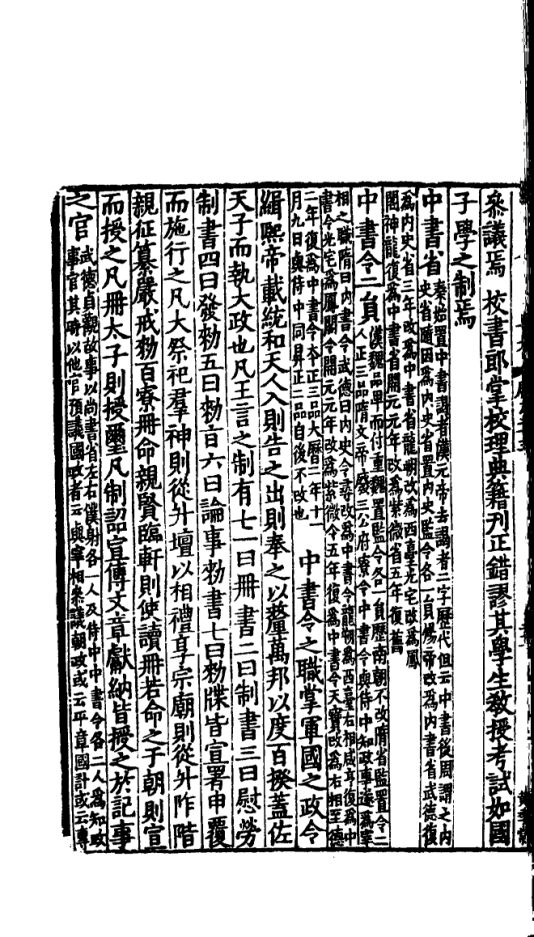 叅議焉　校書郎掌校理典籍刋正錯謬其學生敎授考試如國
子學之制焉
中書省秦始置中書謁者漢元帝去謁者二字歷代但云中書後周謂之内
史省隋因爲内史省置内史監令各一員煬帝改爲内書省武德復
爲内史省三年改爲中書省龍朔改爲西臺光宅改爲鳳
閣神龍復爲中書省開元元年改爲紫微省五年復舊
中書令二員漢魏品卑而付重魏置監令各一員歷南朝不改隋省監置令二
人正三品隋文帝廢三公府寮令中書令與侍中知政事遂爲宰
相之職隋曰内書令武德曰内史令尋改爲中書令龍朔爲西臺右相咸亨復爲中
書令光宅爲鳳閣令開元元年改爲紫微令五年復爲中書令天寶改爲右相至德
二年復爲中書令本正三品大曆二年十一
月九日與侍中同昇正二品自後不改也
中書令之職掌軍國之政令
緝熙帝載統和天人入則告之出則奉之以釐萬邦以度百揆蓋佐
天子而執大政也凡王言之制有七一曰冊書二曰制書三曰慰勞
制書四曰發勑五曰勑旨六曰論事勑書七曰勑牒皆宣署申覆
而施行之凡大祭祀羣神則從升壇以相禮享宗廟則從升阼階
親征纂嚴戒勑百寮冊命親賢臨軒則使讀冊若命之于朝則宣
而授之凡冊太子則授璽凡制詔宣傳文章獻納皆授之於記事
之官武德貞觀故事以尚書省左右僕射各一人及侍中中書令各二人爲知政
事官其時以他官預議國政者云與宰相參議朝政或云平章國計或云專